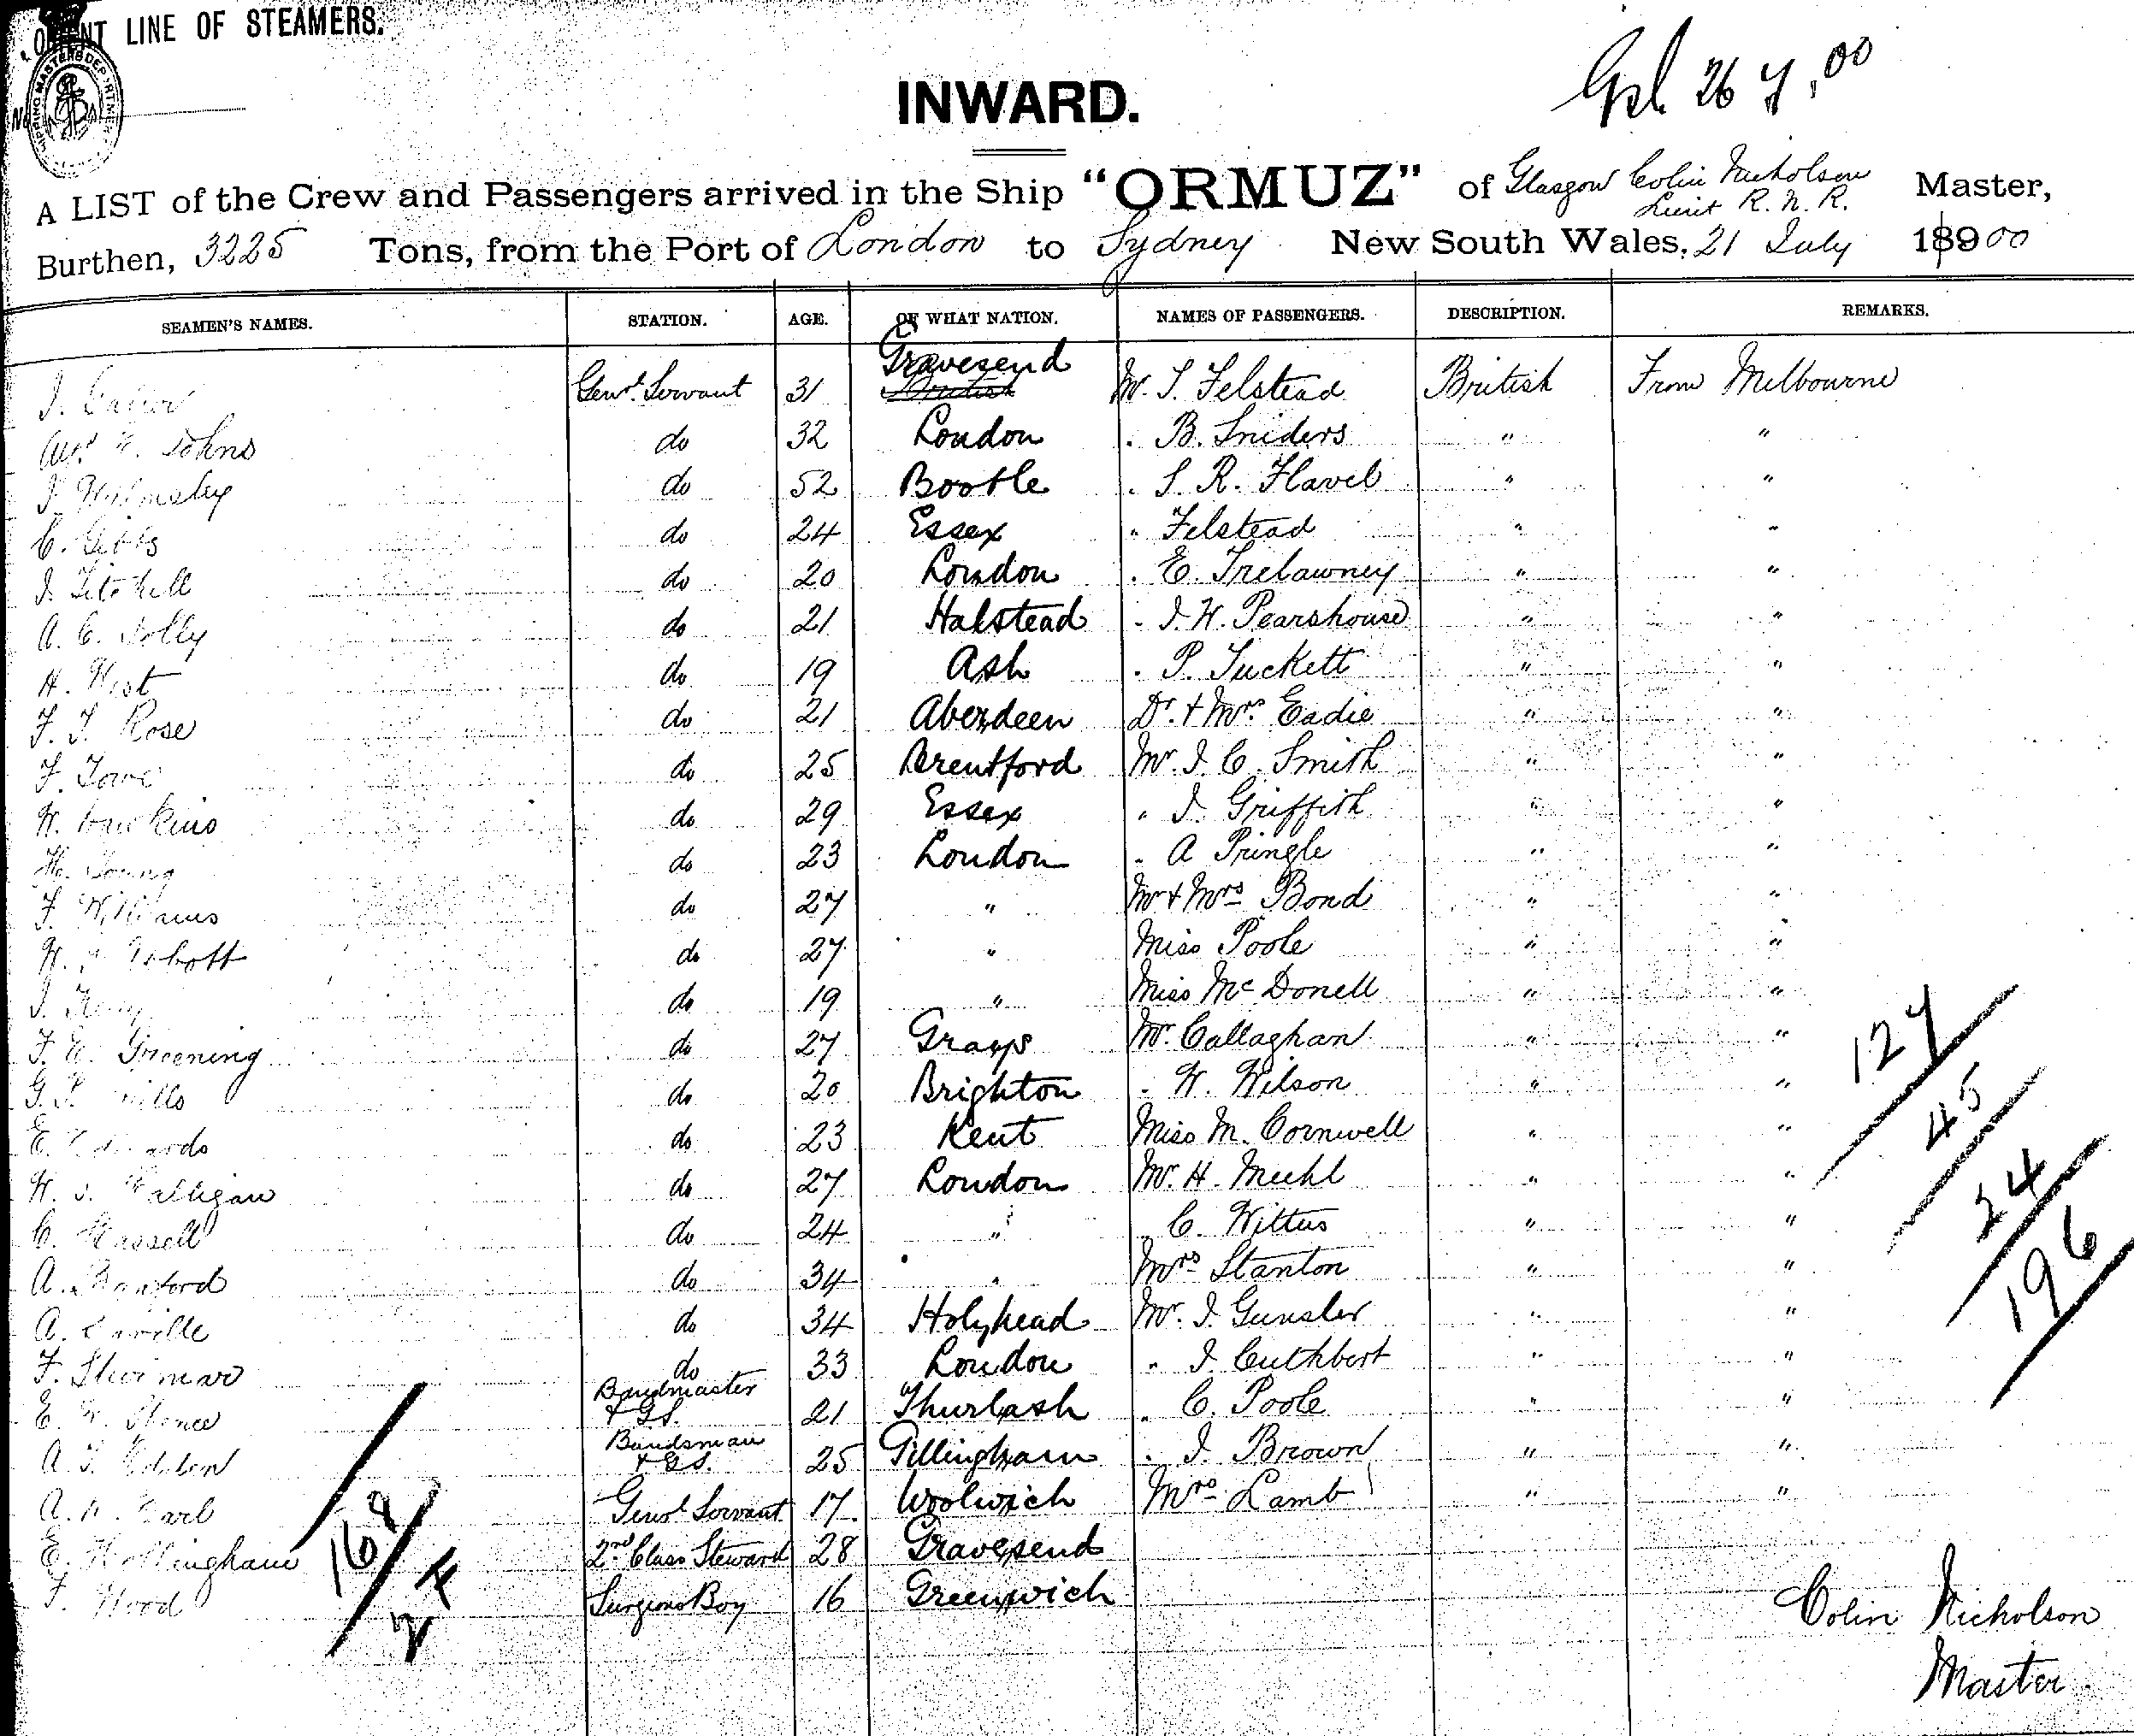 ORIENT LINE OF STEAMERS.
INWARD.
26 7.00
A LIST of the Crew and Passengers arrived in the Ship "ORMUZ" of Glasgow Colin Nicholson Lieut R. N. R. Master,
Burthen, 3225 Tons, from the Port of London to Sydney New South Wales, 21 July 18900
SEAMEN'S NAMES. STATION. AGE. OF WHAT NATION. NAMES OF PASSENGERS. DESCRIPTION. REMARKS.
J. Genl. Servant 31 Gravesend British Mr. S. Felstead British From Melbourne
Johns do 32 London " B. Sniders " "
J. do 52 Bootle " S. R. Flavel " "
C. Gibbs do 24 Essex " Felstead " "
J. Litchell do 20 London " E. Trelawney " "
A. C. Jolly do 21 Halstead " J. H. Pearshouse " "
H. West do 19 Ash " P. Tuckett " "
F. J. Rose do 21 Aberdeen Dr. & Mrs Eadie " "
F. Towe do 25 Brentford Mr. J. C. Smith " "
W. Hawkins do 29 Essex " J. Griffith " "
Young do 23 London " A Pringle " "
F. Williams do 27 " Mr & Mrs Bond " "
W. Abbott do 27 " Miss Poole " "
J. do 19 " Miss McDonell " "
F. E. Greening do 27 Grays Mr. Callaghan " "
G. do 20 Brighton " W. Wilson " "
E. Edwards do 23 Kent Miss M. Cornwell " "
W. J. do 27 London Mr. H. Muehl " "
C. do 24 " " C. Wittus " "
A. do 34 " Mrs Stanton " "
A. do 34 Holyhead Mr. J. Gunsler " "
F. do 33 London " J. Cuthbert " "
E. Bandmaster & GS. 21 Thurlash " C. Poole " "
A. Bandsman & GS. 25 Gillingham " J. Brown " "
A. Genl Servant 17 Woolwich Mrs Lamb " "
E. 2nd Class Steward 28 Gravesend
F. Wood Surgeons Boy 16 Greenwich
127
45
24
196
168
24
Colin Nicholson
Master